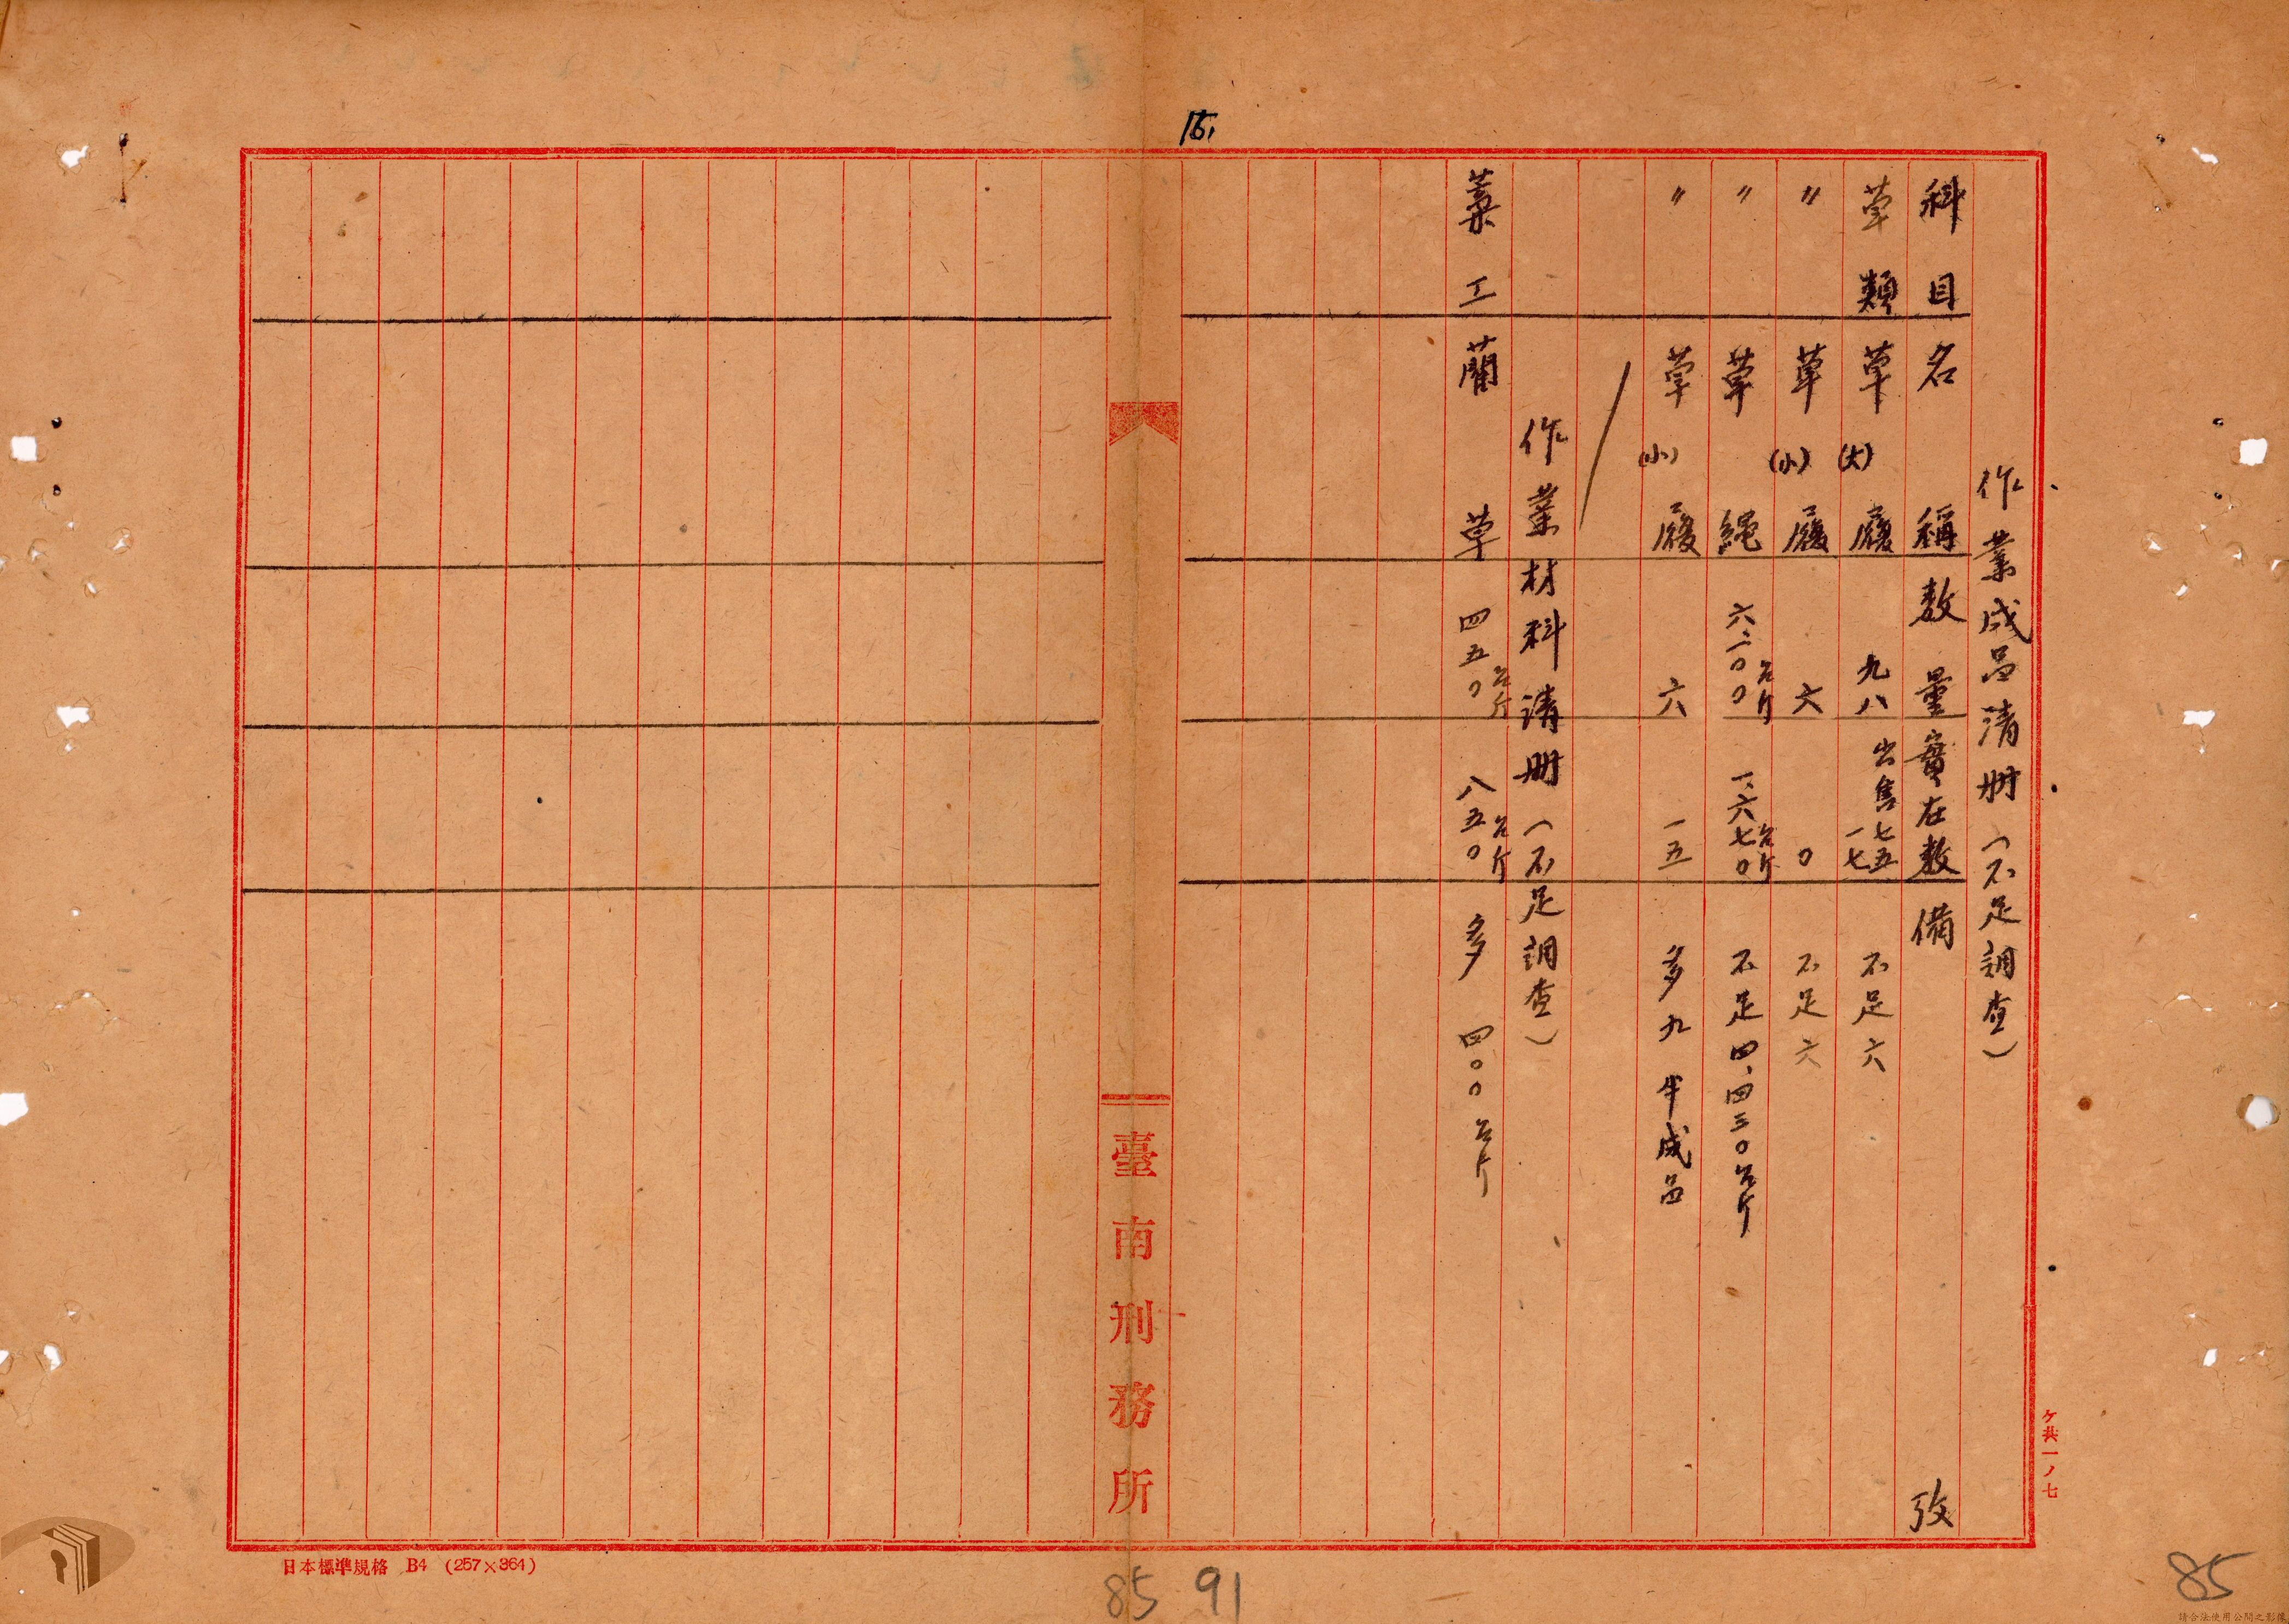 15,
作業成品清册（不足調查）
科目 名稱 數量 實在數 備攷
草類 草(大)履 九八 出售七五 一七 不足六
〃 草(小)履 六 〇 不足六
〃 草繩 六二〇〇公斤 一、六七〇公斤 不足四、四三〇公斤
〃 草(小)履 六 一五 多九 半成品
作業材料清册（不足調查）
藁工 藺草 四五〇公斤 八五〇公斤 多 四〇〇公斤
臺南刑務所
ケ共一ノ七
日本標準規格 B4 (257×364)
85 91
85
請合法使用公開之影像